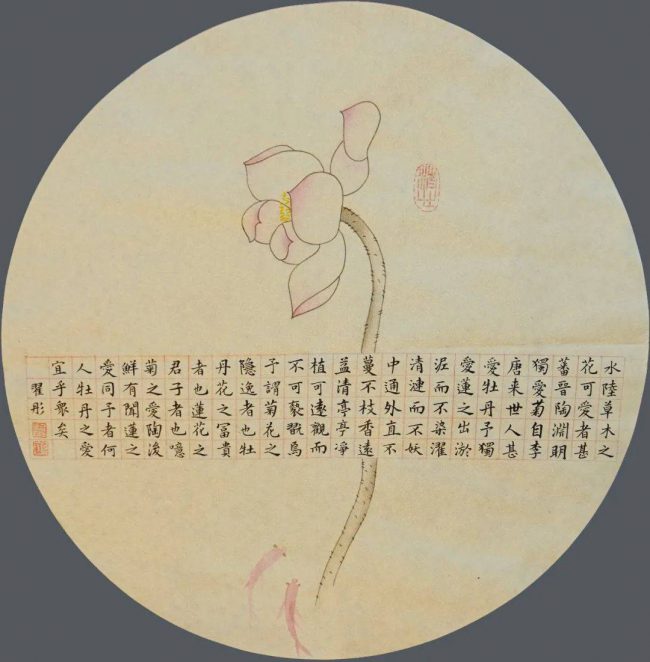 水陸草木之
花可愛者甚
蕃晉陶淵明
獨愛菊自李
唐来世人甚
愛牡丹予獨
愛蓮之出淤
泥而不染濯
清漣而不妖
中通外直不
蔓不枝香遠
益清亭亭淨
植可遠觀而
不可褻翫焉
予謂菊花之
隱逸者也牡
丹花之冨貴
者也蓮花之
君子者也噫
菊之愛陶後
鮮有聞蓮之
愛同予者何
人牡丹之愛
宜乎衆矣
翟彤